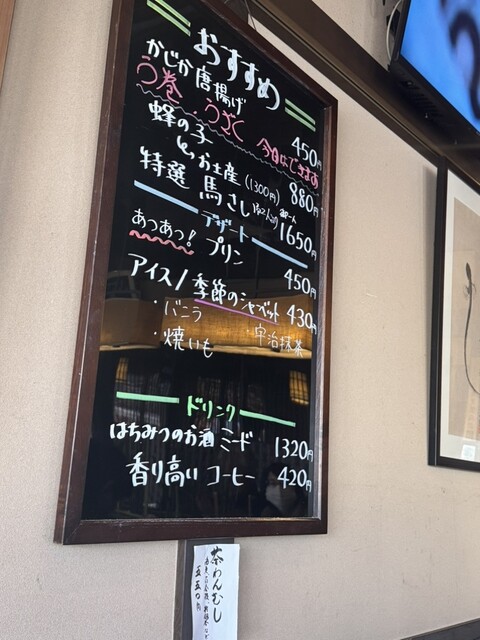 おすすめ
かじか唐揚げ 450円
う巻・うざく 今日はできます
蜂の子 880円
お土産 (1300円)
特選 馬さし 1650円
デザート
あつあつ! プリン 450円
アイス/季節のシャーベット 430円
・バニラ
・焼いも ・宇治抹茶
ドリンク
はちみつのお酒 ミード 1320円
香り高い コーヒー 420円
茶わんむし
五五〇円